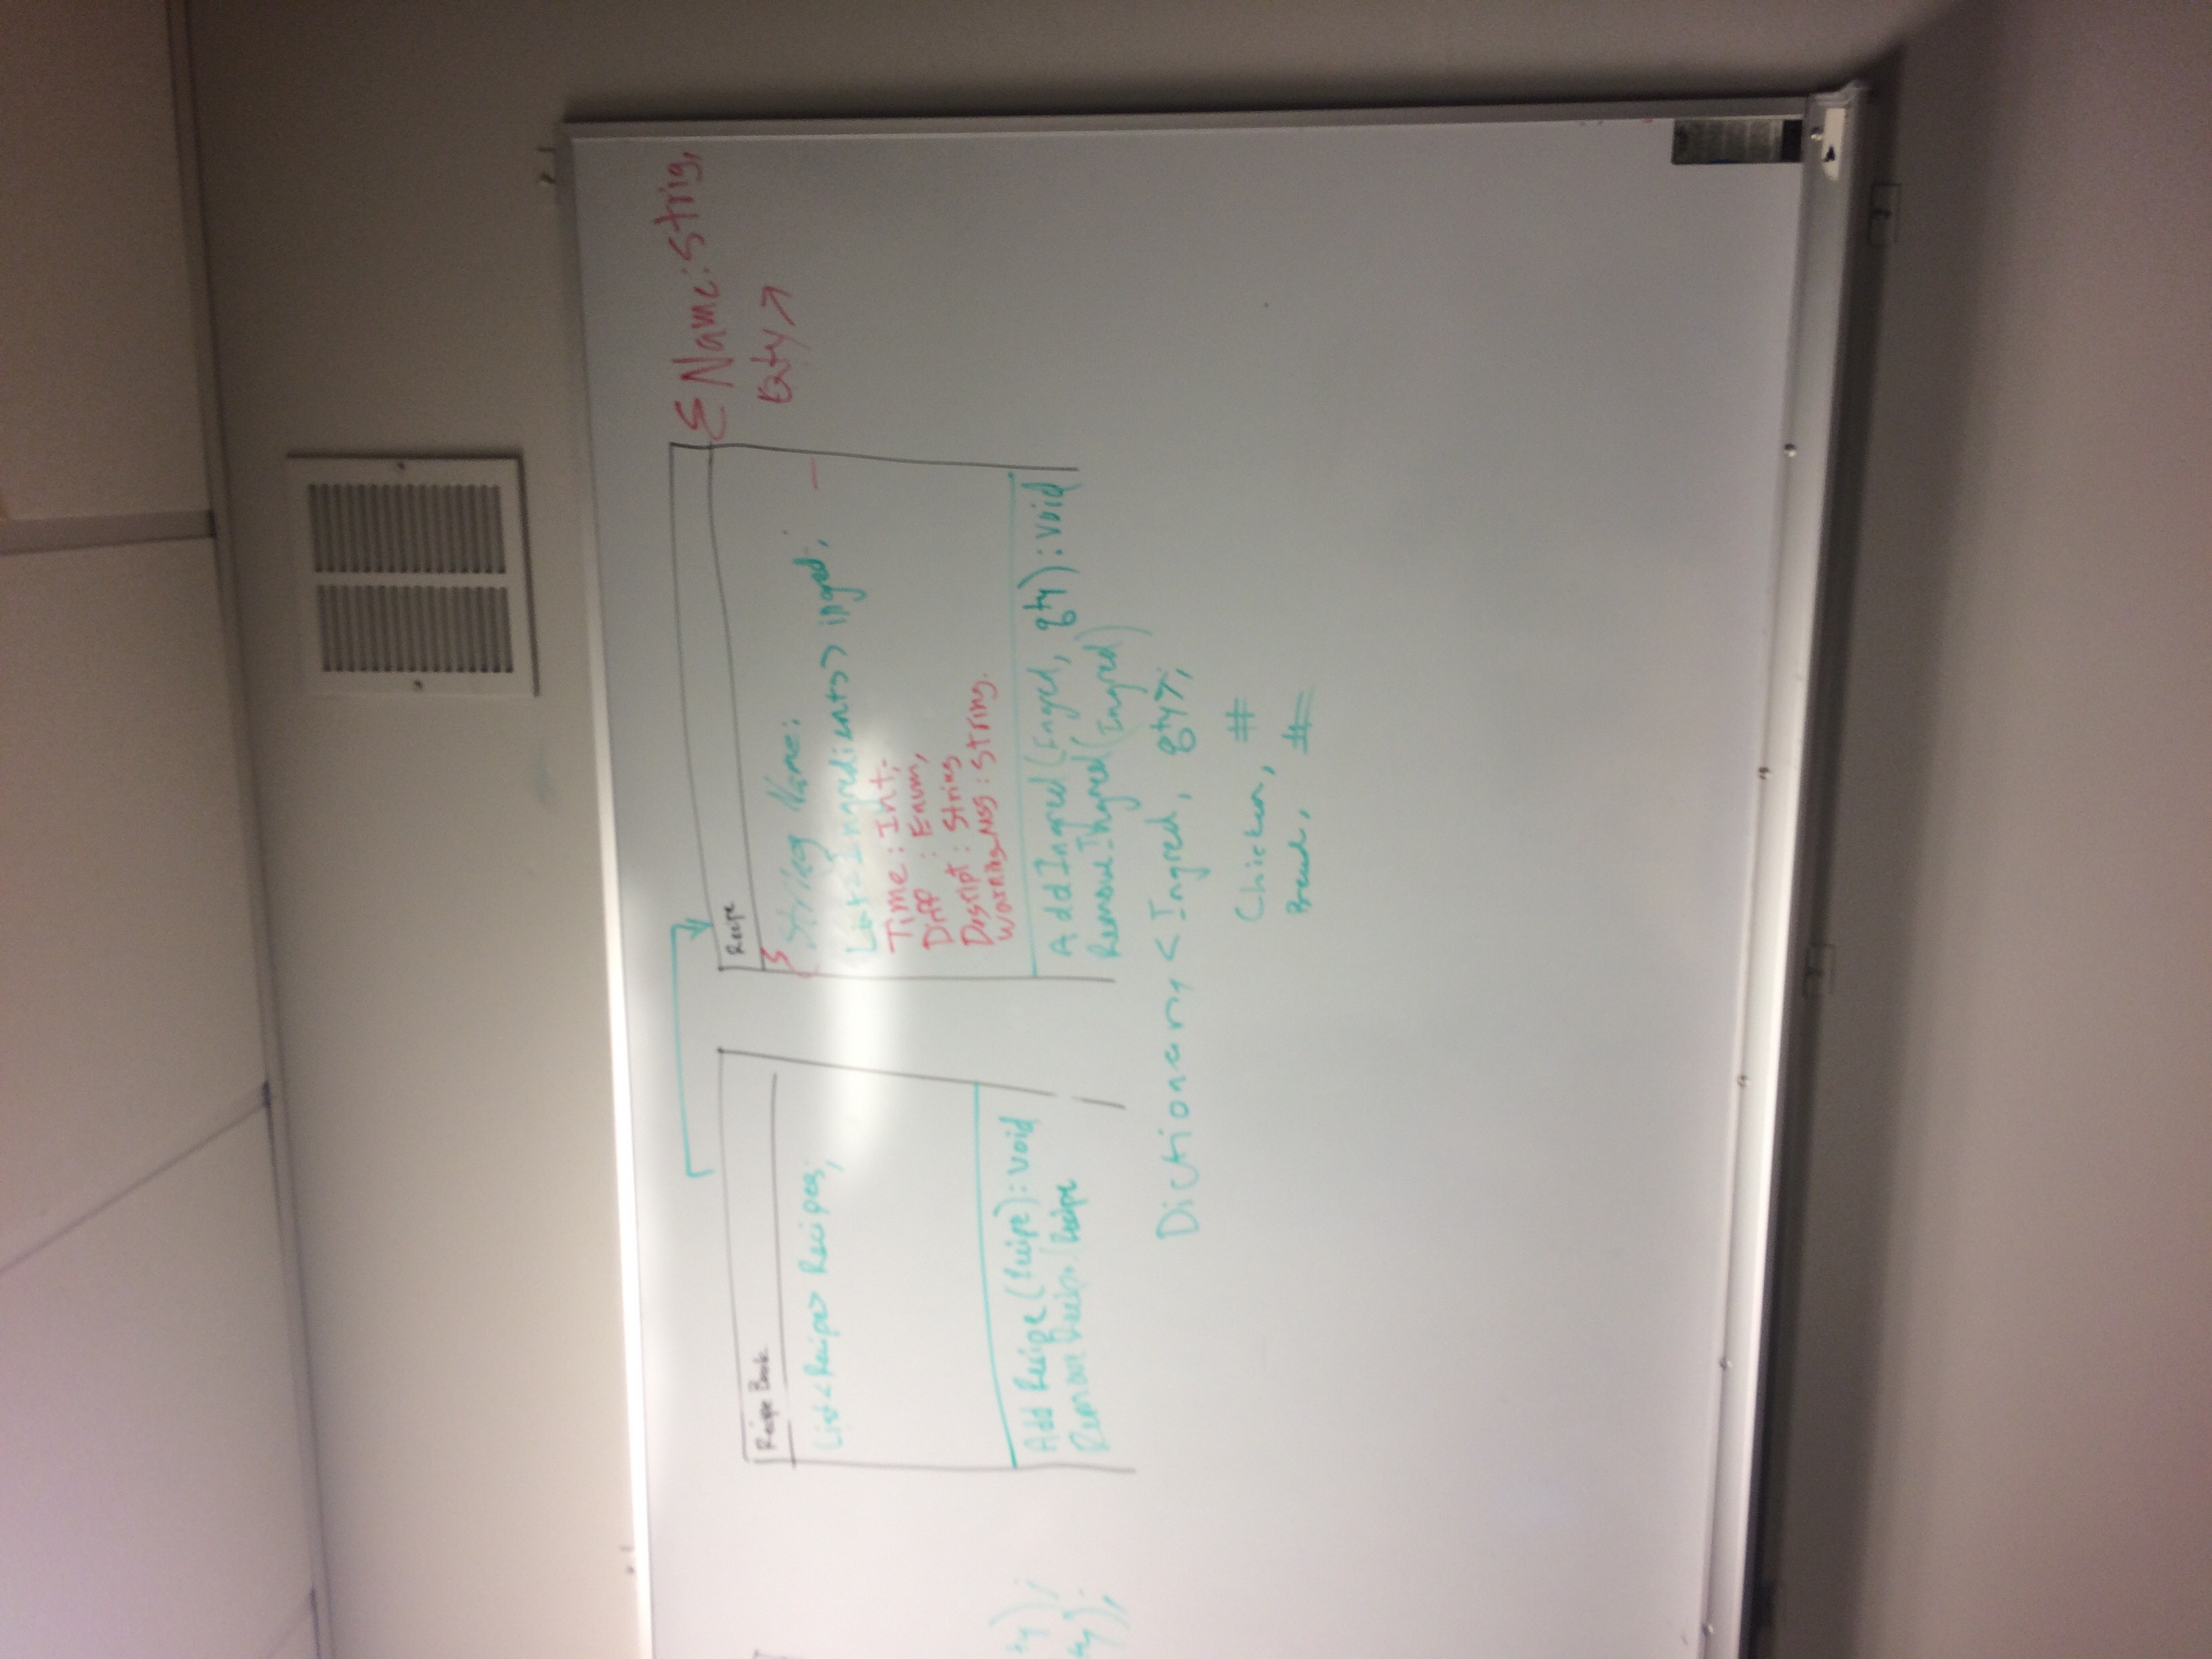 Recipe Book
List<Recipe> Recipes;
Add Recipe (Recipe): void
Remove Recipe (Recipe
Recipe
String Name;
List<Ingredients> ingred;
Time: Int,
Diff : Enum,
Descript: String
Warning_Msg: String.
AddIngred(Ingred, qty): void
RemoveIngred(Ingred)
Dictionary <Ingred, qty>;
Chicken, #
Bread, #
{ Name: Strig,
Qty
ty);
ty);